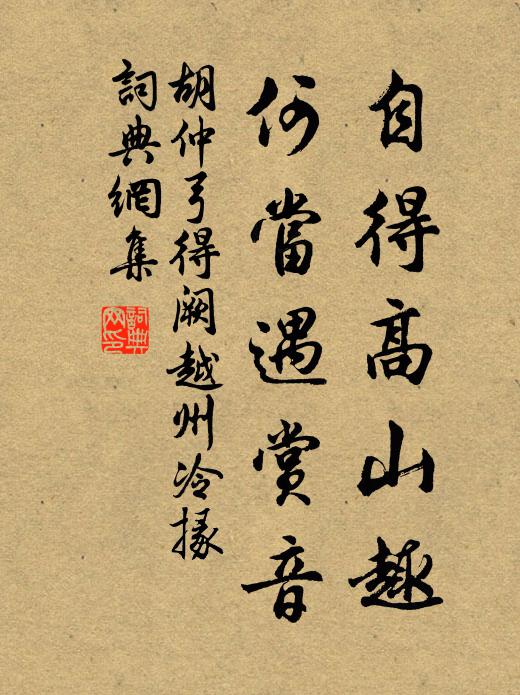 自得高山趣
何當遇賞音
胡仲弓得阙越州冷掾
詞典網集
詞典網印